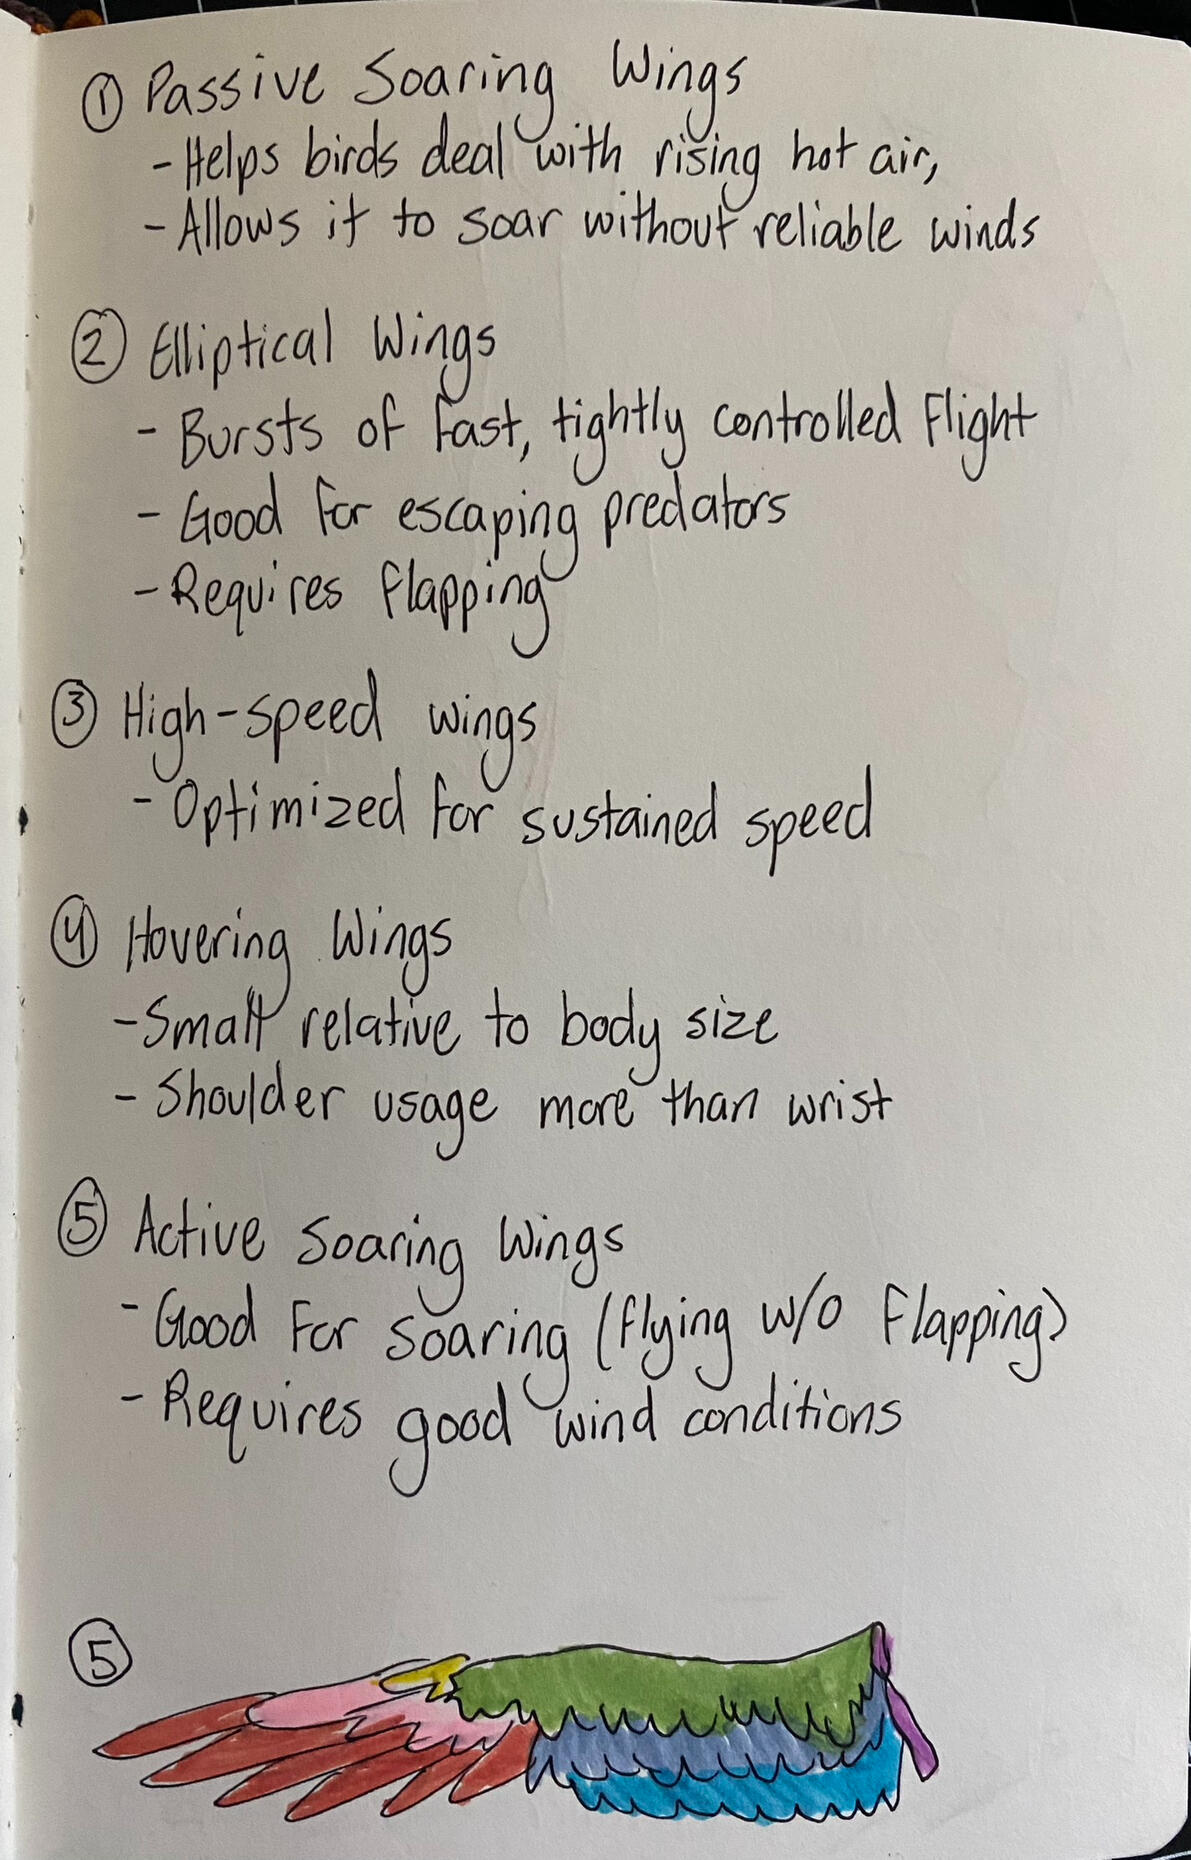 ① Passive Soaring Wings
- Helps birds deal with rising hot air,
- Allows it to soar without reliable winds
② Elliptical Wings
- Bursts of fast, tightly controlled flight
- Good for escaping predators
- Requires flapping
③ High-speed wings
- Optimized for sustained speed
④ Hovering Wings
- Small relative to body size
- Shoulder usage more than wrist
⑤ Active Soaring Wings
- Good for soaring (flying w/o flapping)
- Requires good wind conditions
⑤